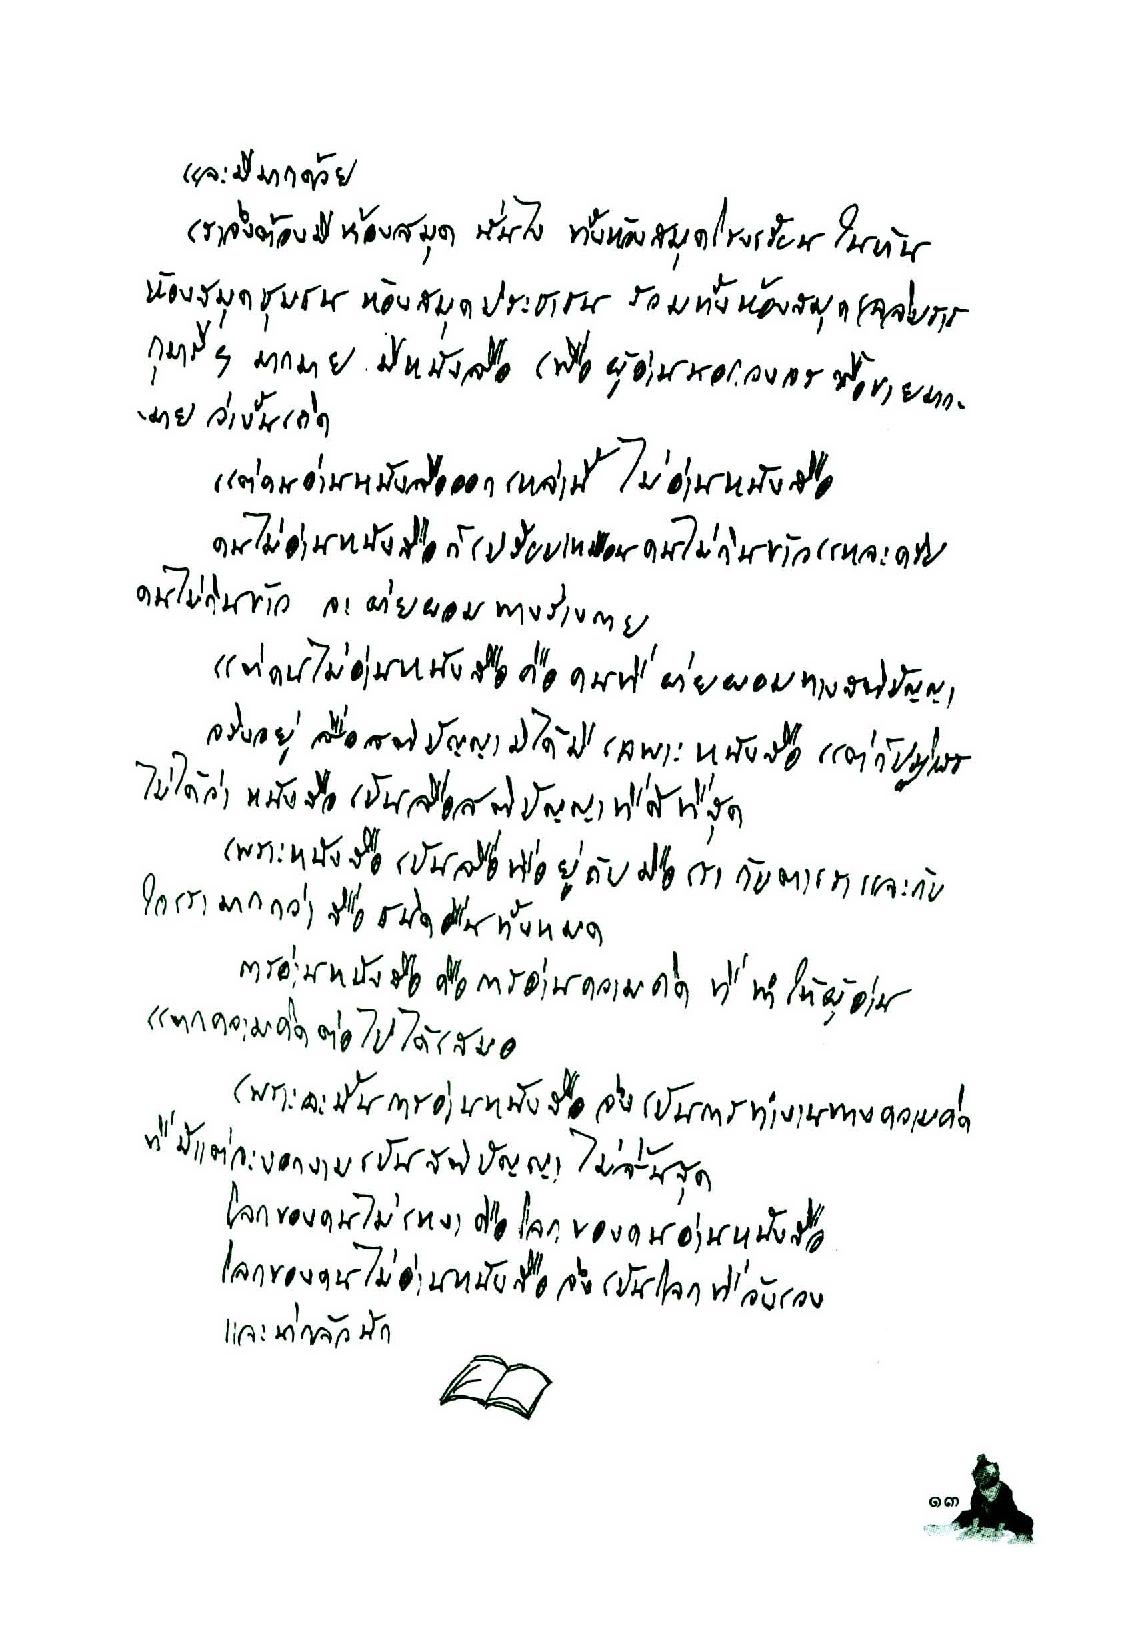 และมีมากด้วย
เราจึงต้องมีห้องสมุด นั่นไง ทั้งห้องสมุดโรงเรียน ในทัน
ห้องสมุดชุมชน ห้องสมุดประชาชน รวมทั้งห้องสมุดเฉลิมราช
กุมารี ฯ มากมาย มีหนังสือ เพื่อ ผู้อ่าน ซื้อขายมาก
มาย ว่างั้นเถิด
แต่คนอ่านหนังสือออกเหล่านี้ ไม่อ่านหนังสือ
คนไม่อ่านหนังสือ ก็เปรียบเหมือนคนไม่กินข้าวแหละครับ
คนไม่กินข้าว จะ ผ่ายผอม ทางร่างกาย
แต่คนไม่อ่านหนังสือ คือ คนที่ ผ่ายผอมทางสติปัญญา
จริงอยู่ สื่อสติปัญญามิได้มี เฉพาะ หนังสือ แต่ก็ปฏิเสธ
ไม่ได้ว่า หนังสือ เป็นสื่อสติปัญญาที่ดีที่สุด
เพราะหนังสือ เป็นสื่อที่อยู่กับมือ เรา กับตาเรา และกับ
ใจเรา มากกว่า สื่อ ชนิดอื่นทั้งหมด
การอ่านหนังสือ คือการอ่านความคิด ที่ ทำให้ผู้อ่าน
แตกความคิดต่อไปได้เสมอ
เพราะฉะนั้นการอ่านหนังสือ จึง เป็นการทำงานทางความคิด
ที่มีแต่จะงอกงามเป็นสติปัญญา ไม่สิ้นสุด
โลกของคนไม่เหงา คือ โลกของคนอ่านหนังสือ
โลกของคนไม่อ่านหนังสือ จึง เป็นโลกที่อ้างว้าง
และน่ากลัวนัก
๑๓